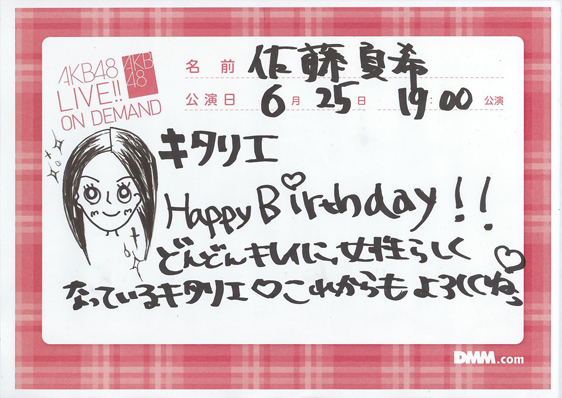 AKB48
LIVE!!
ON DEMAND
AKB
48
名前 佐藤夏希
公演日 6月25日 19:00 公演
キタリエ
Happy Birthday!!
どんどんキレイに、女性らしく
なっているキタリエ♡これからもよろしくね。
DMM.com